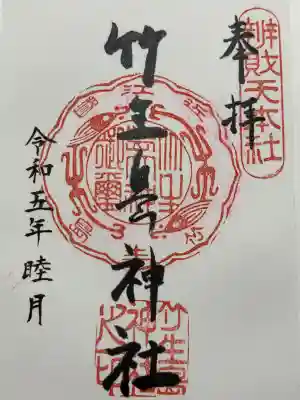 奉拝
辨財天本社
竹生島神社
竹生島
令和五年睦月